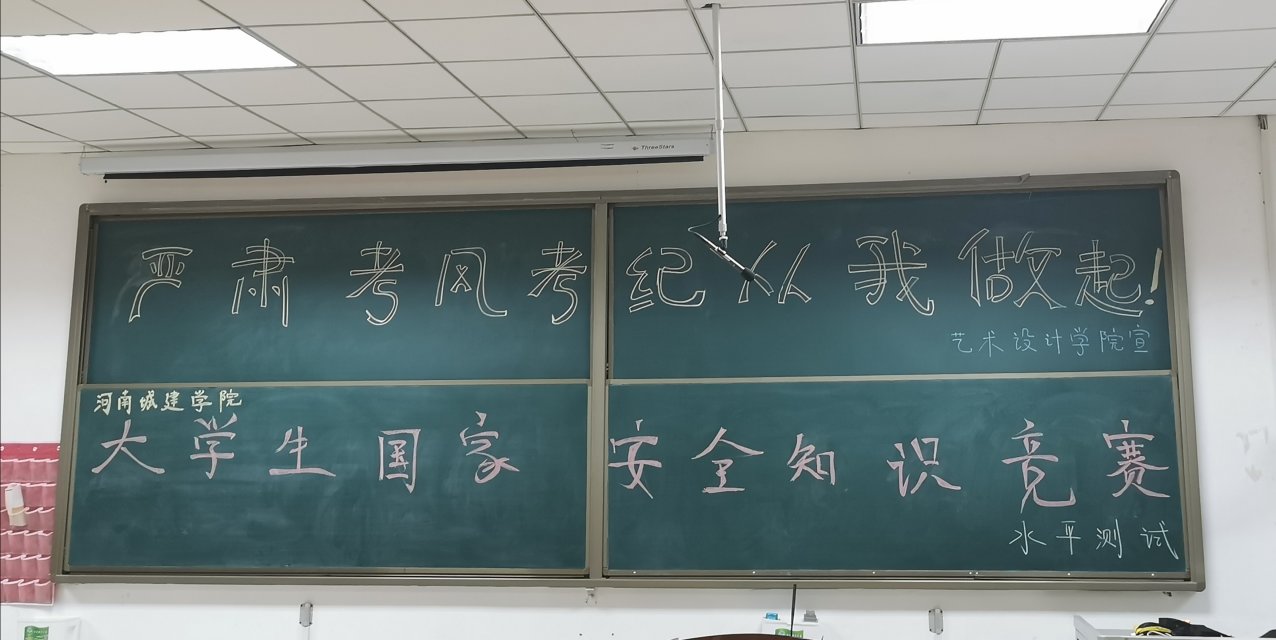 ThreeStars
严肃考风考纪从我做起!
艺术设计学院宣
河南城建学院
大学生国家安全知识竞赛
水平测试